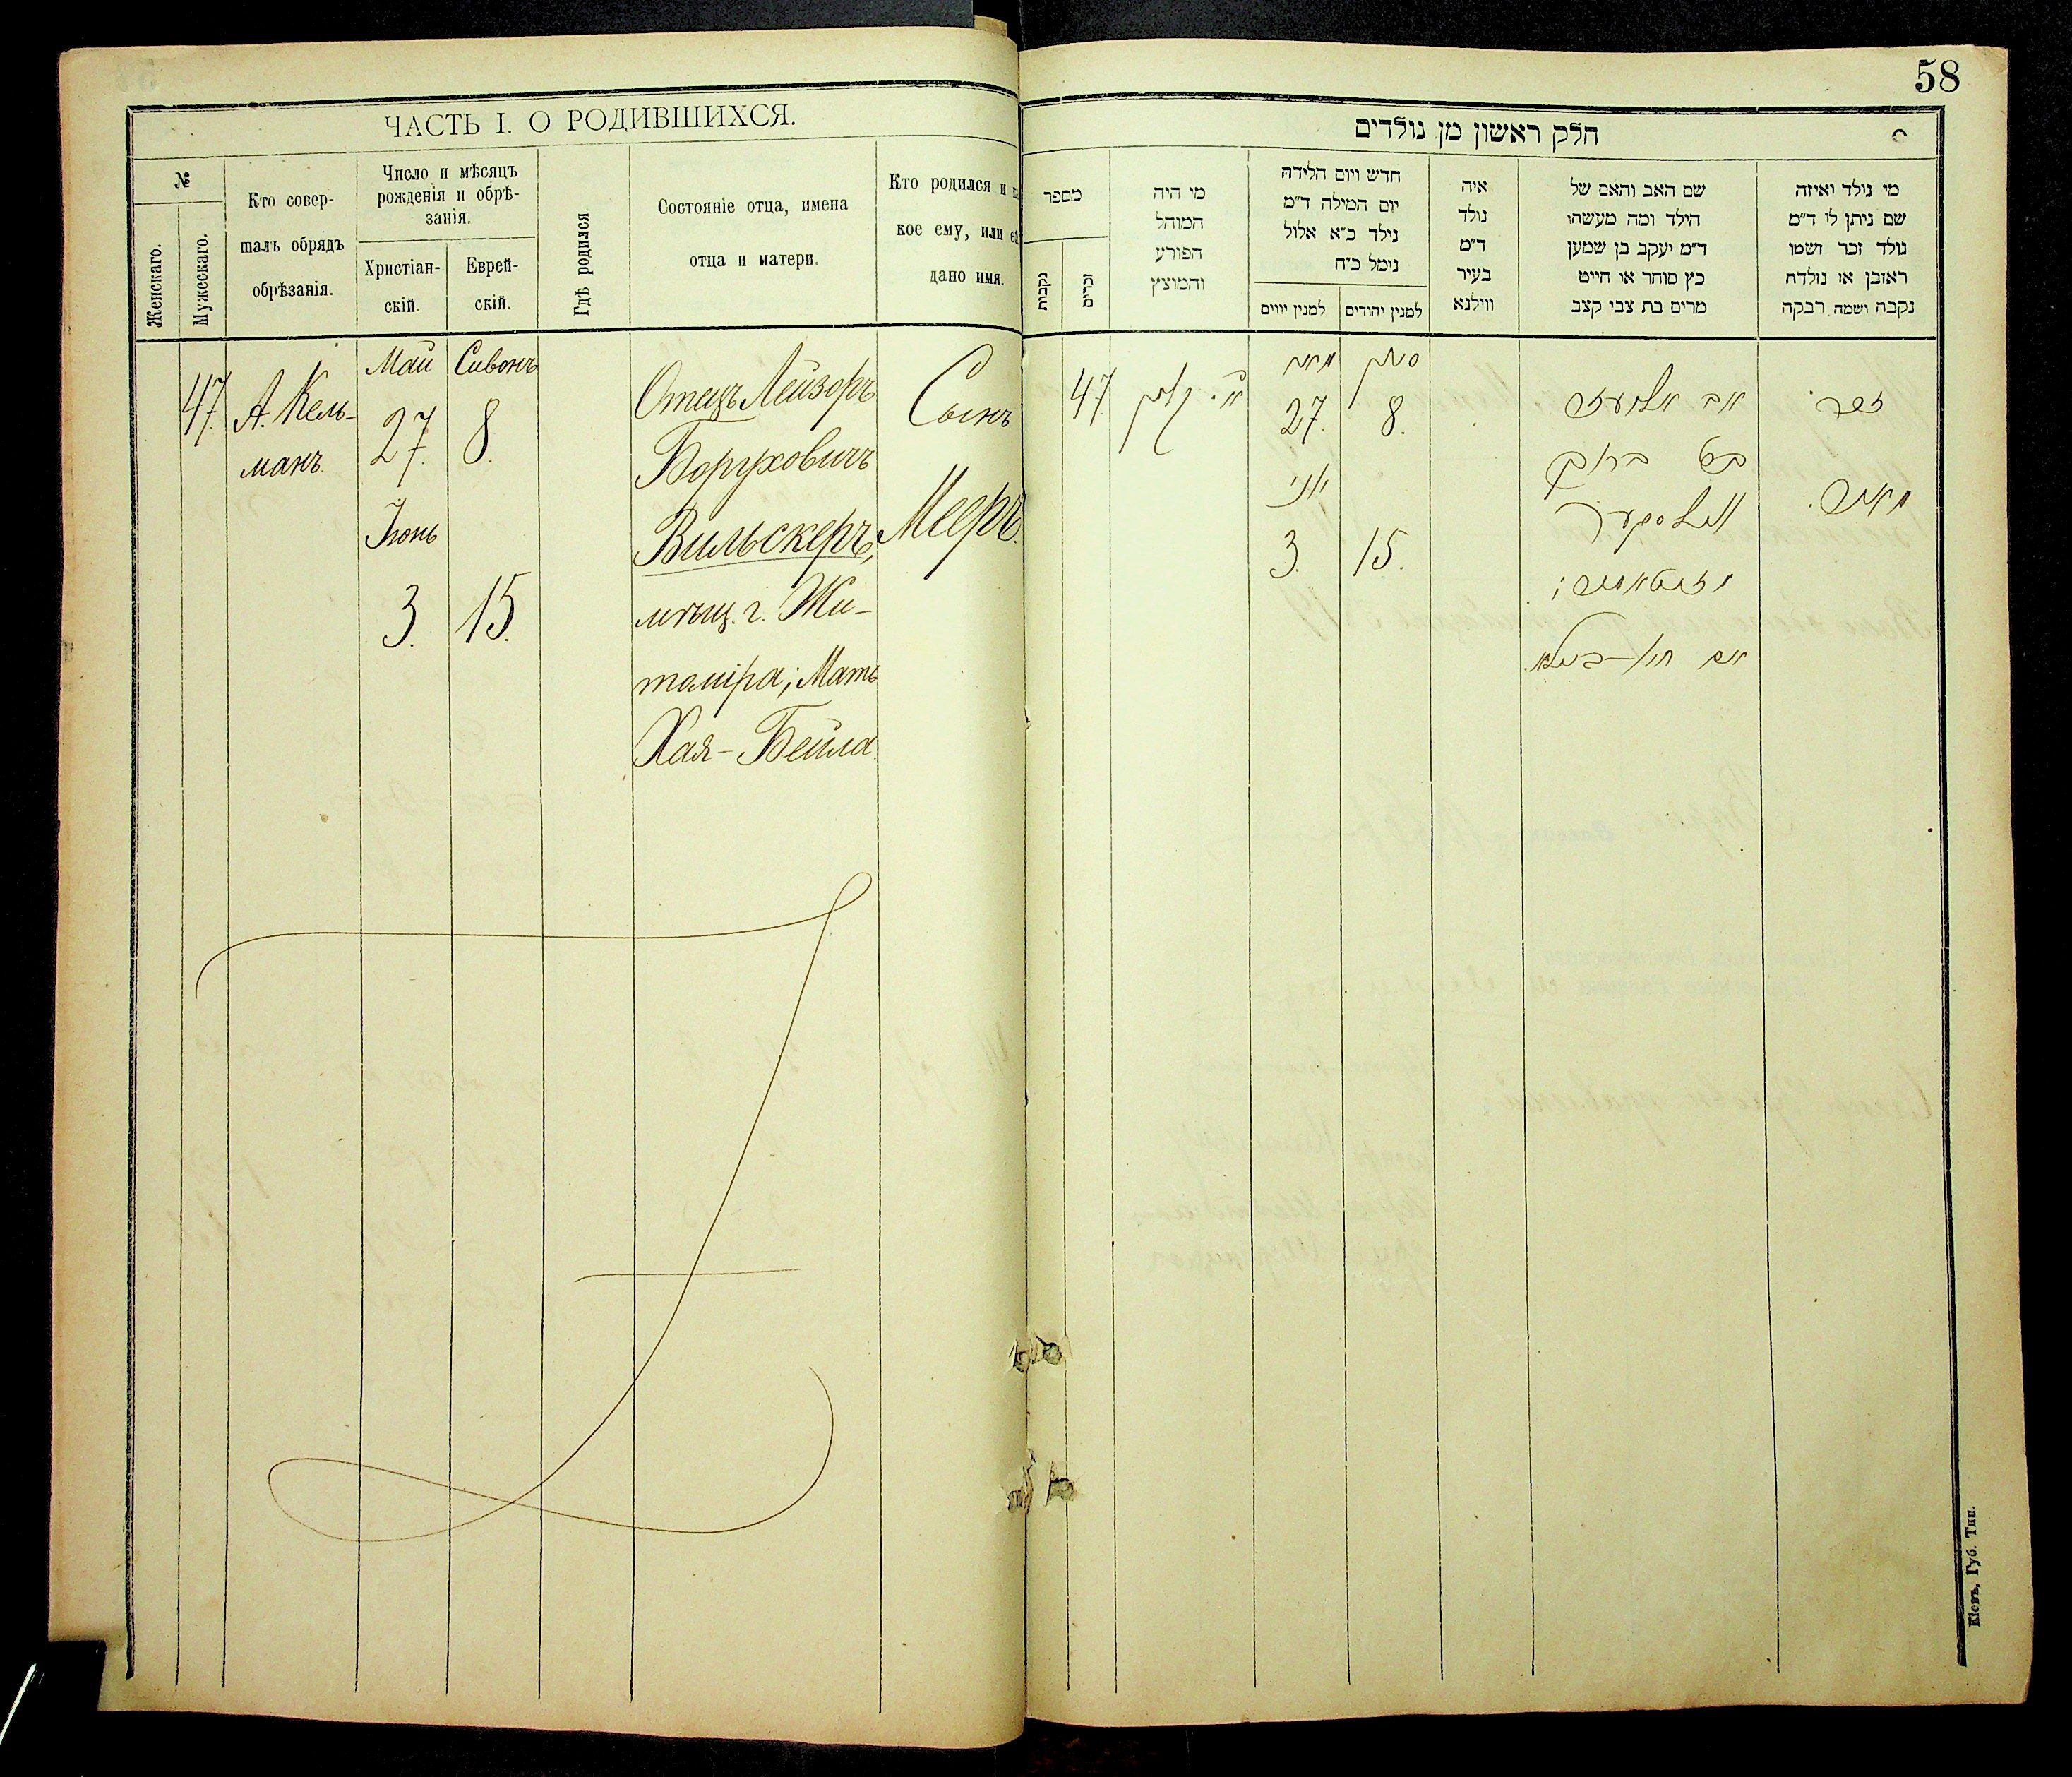 58
ЧАСТЬ I. О РОДИВШИХСЯ.
№
Женскаго.
Мужескаго.
Кто совер-
шалъ обрядъ
обрѣзанія.
Число и мѣсяцъ
рожденія и обрѣ-
занія.
Христіан-
скій.
Еврей-
скій.
Гдѣ родился.
Состояніе отца, имена
отца и матери.
Кто родился и
кое ему, или
дано имя.
Май Сивонъ
47. А. Кель-
манъ.
27. 8.
Іюнь
3. 15.
Отецъ Лейзоръ
Боруховичъ
Вильскеръ,
мѣщ. г. Жи-
томіра; Мать
Хая-Бейла.
Сынъ
Мееръ.
חלק ראשון מן נולדים
מי נולד ואיזה
שם ניתן לו ד״מ
נולד זכר ושמו
ראובן או נולדה
נקבה ושמה רבקה
שם האב והאם של
הילד ומה מעשהו
ד״מ יעקב בן שמען
כץ סוחר או חייט
מרים בת צבי קצב
איה
נולד
ד״מ
בעיר
ווילנא
חדש ויום הלידה
יום המילה ד״מ
נילד כ״א אלול
נימל כ״ח
למנין יהודים
למנין יווים
מי היה
המוהל
הפורע
והמוצץ
מספר
זכרים
נקבות
זכר.
מאיר.
אב אליעזר
ברוך
ווילסקער
אם חיה-ביילא.
סיון
8.
15.
מאי
27.
יוני
3.
47.
Кіевъ, Губ. Тип.